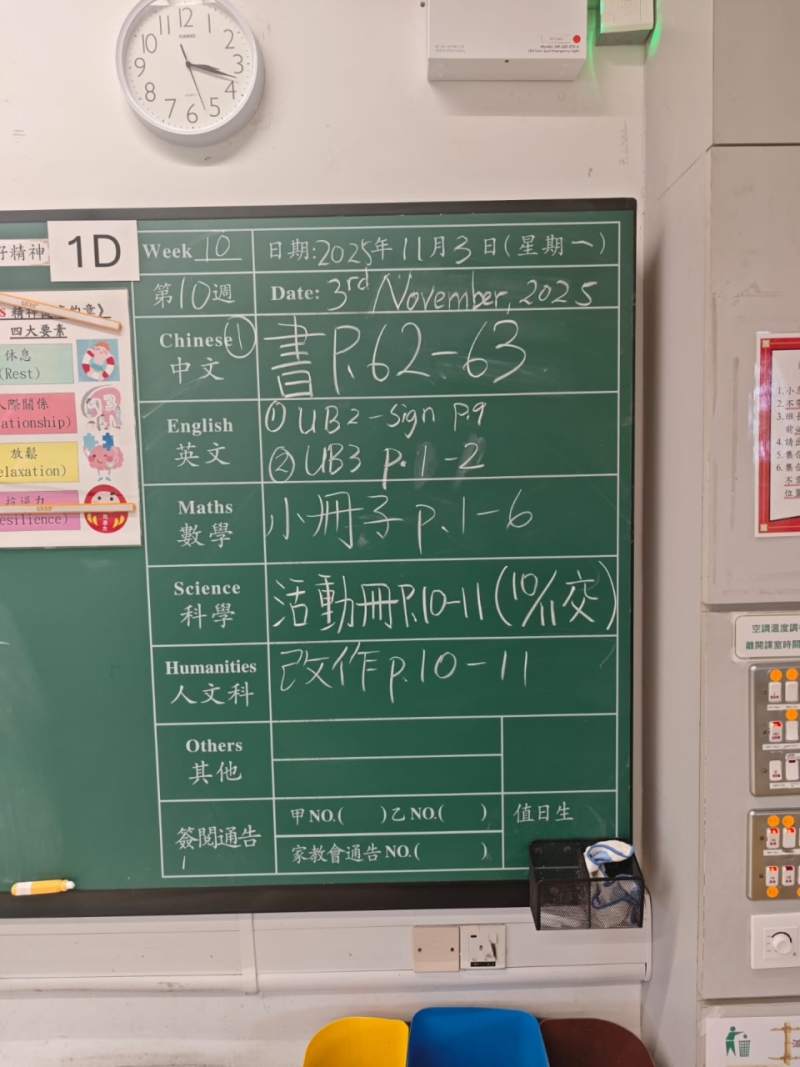 CASIO
12
1
2
3
4
5
6
7
8
9
10
11
好精神
1D
精神
四大要素
休息
(Rest)
人際關係
放鬆
抗逆力
Week 10
日期:2025年11月3日(星期一)
第10週
Date: 3rd November, 2025
Chinese ①
中文
書P.62-63
English
英文
① UB2-sign p.9
② UB3 p.1-2
Maths
數學
小冊子p.1-6
Science
科學
活動冊P.10-11(10/11交)
Humanities
人文科
改作p.10-11
Others
其他
簽閱通告
甲NO.( )乙NO.( )
值日生
家教會通告NO.( )
空調溫度調
離開課室時間